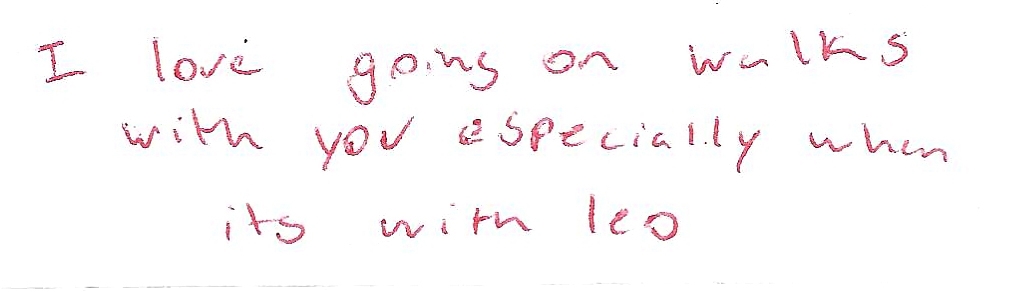 I love going on walks
with you especially when
its with leo